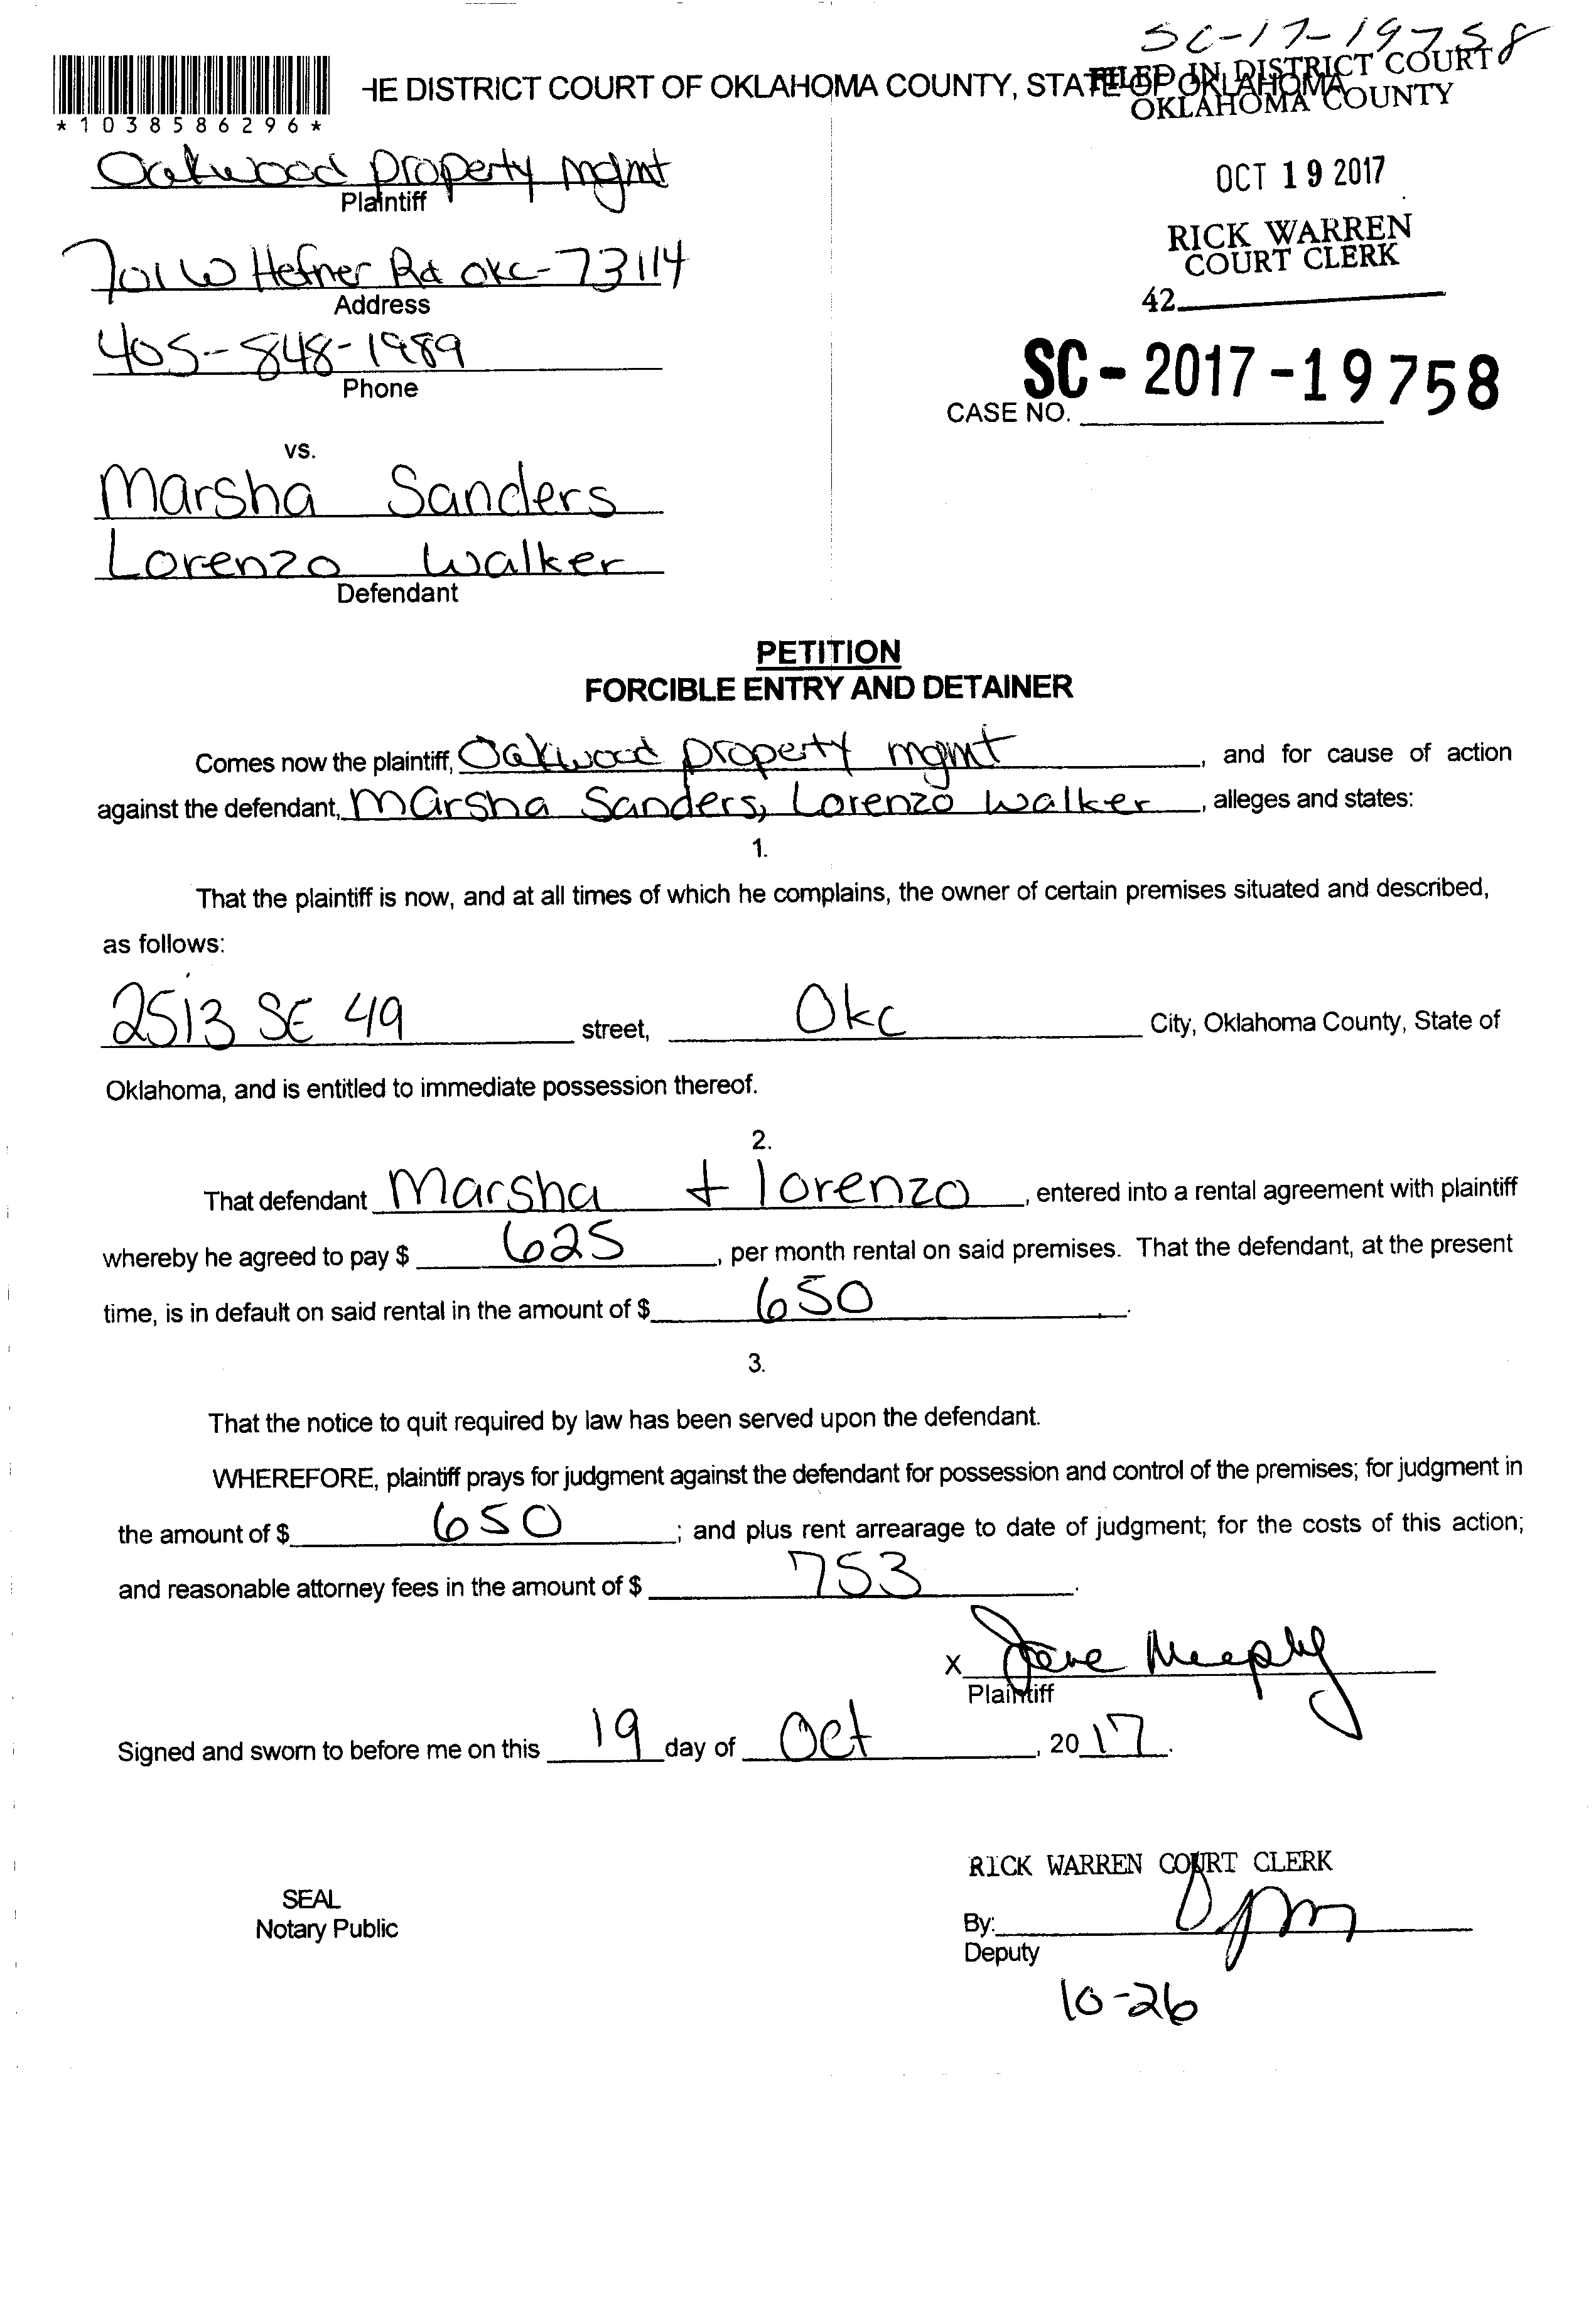 SC-17-19758
HE DISTRICT COURT OF OKLAHOMA COUNTY, STATE OF OKLAHOMA
FILED IN DISTRICT COURT
OKLAHOMA COUNTY
*1038586296*
Oakwood property mgmt
Plaintiff
OCT 19 2017
701 W Hefner Rd OKC-73114
Address
RICK WARREN
COURT CLERK
42
405-848-1989
Phone
SC-2017-19758
CASE NO.
vs.
Marsha Sanders
Lorenzo Walker
Defendant
PETITION
FORCIBLE ENTRY AND DETAINER
Comes now the plaintiff, Oakwood property mgmt, and for cause of action
against the defendant, Marsha Sanders, Lorenzo Walker, alleges and states:
1.
That the plaintiff is now, and at all times of which he complains, the owner of certain premises situated and described,
as follows:
2513 SE 49 street, Okc City, Oklahoma County, State of
Oklahoma, and is entitled to immediate possession thereof.
2.
That defendant Marsha + lorenzo, entered into a rental agreement with plaintiff
whereby he agreed to pay $ 625, per month rental on said premises. That the defendant, at the present
time, is in default on said rental in the amount of $ 650.
3.
That the notice to quit required by law has been served upon the defendant.
WHEREFORE, plaintiff prays for judgment against the defendant for possession and control of the premises; for judgment in
the amount of $ 650; and plus rent arrearage to date of judgment; for the costs of this action;
and reasonable attorney fees in the amount of $ 753.
X
Plaintiff
Signed and sworn to before me on this 19 day of Oct, 2017.
RICK WARREN COURT CLERK
SEAL
Notary Public
By:
Deputy
10-26